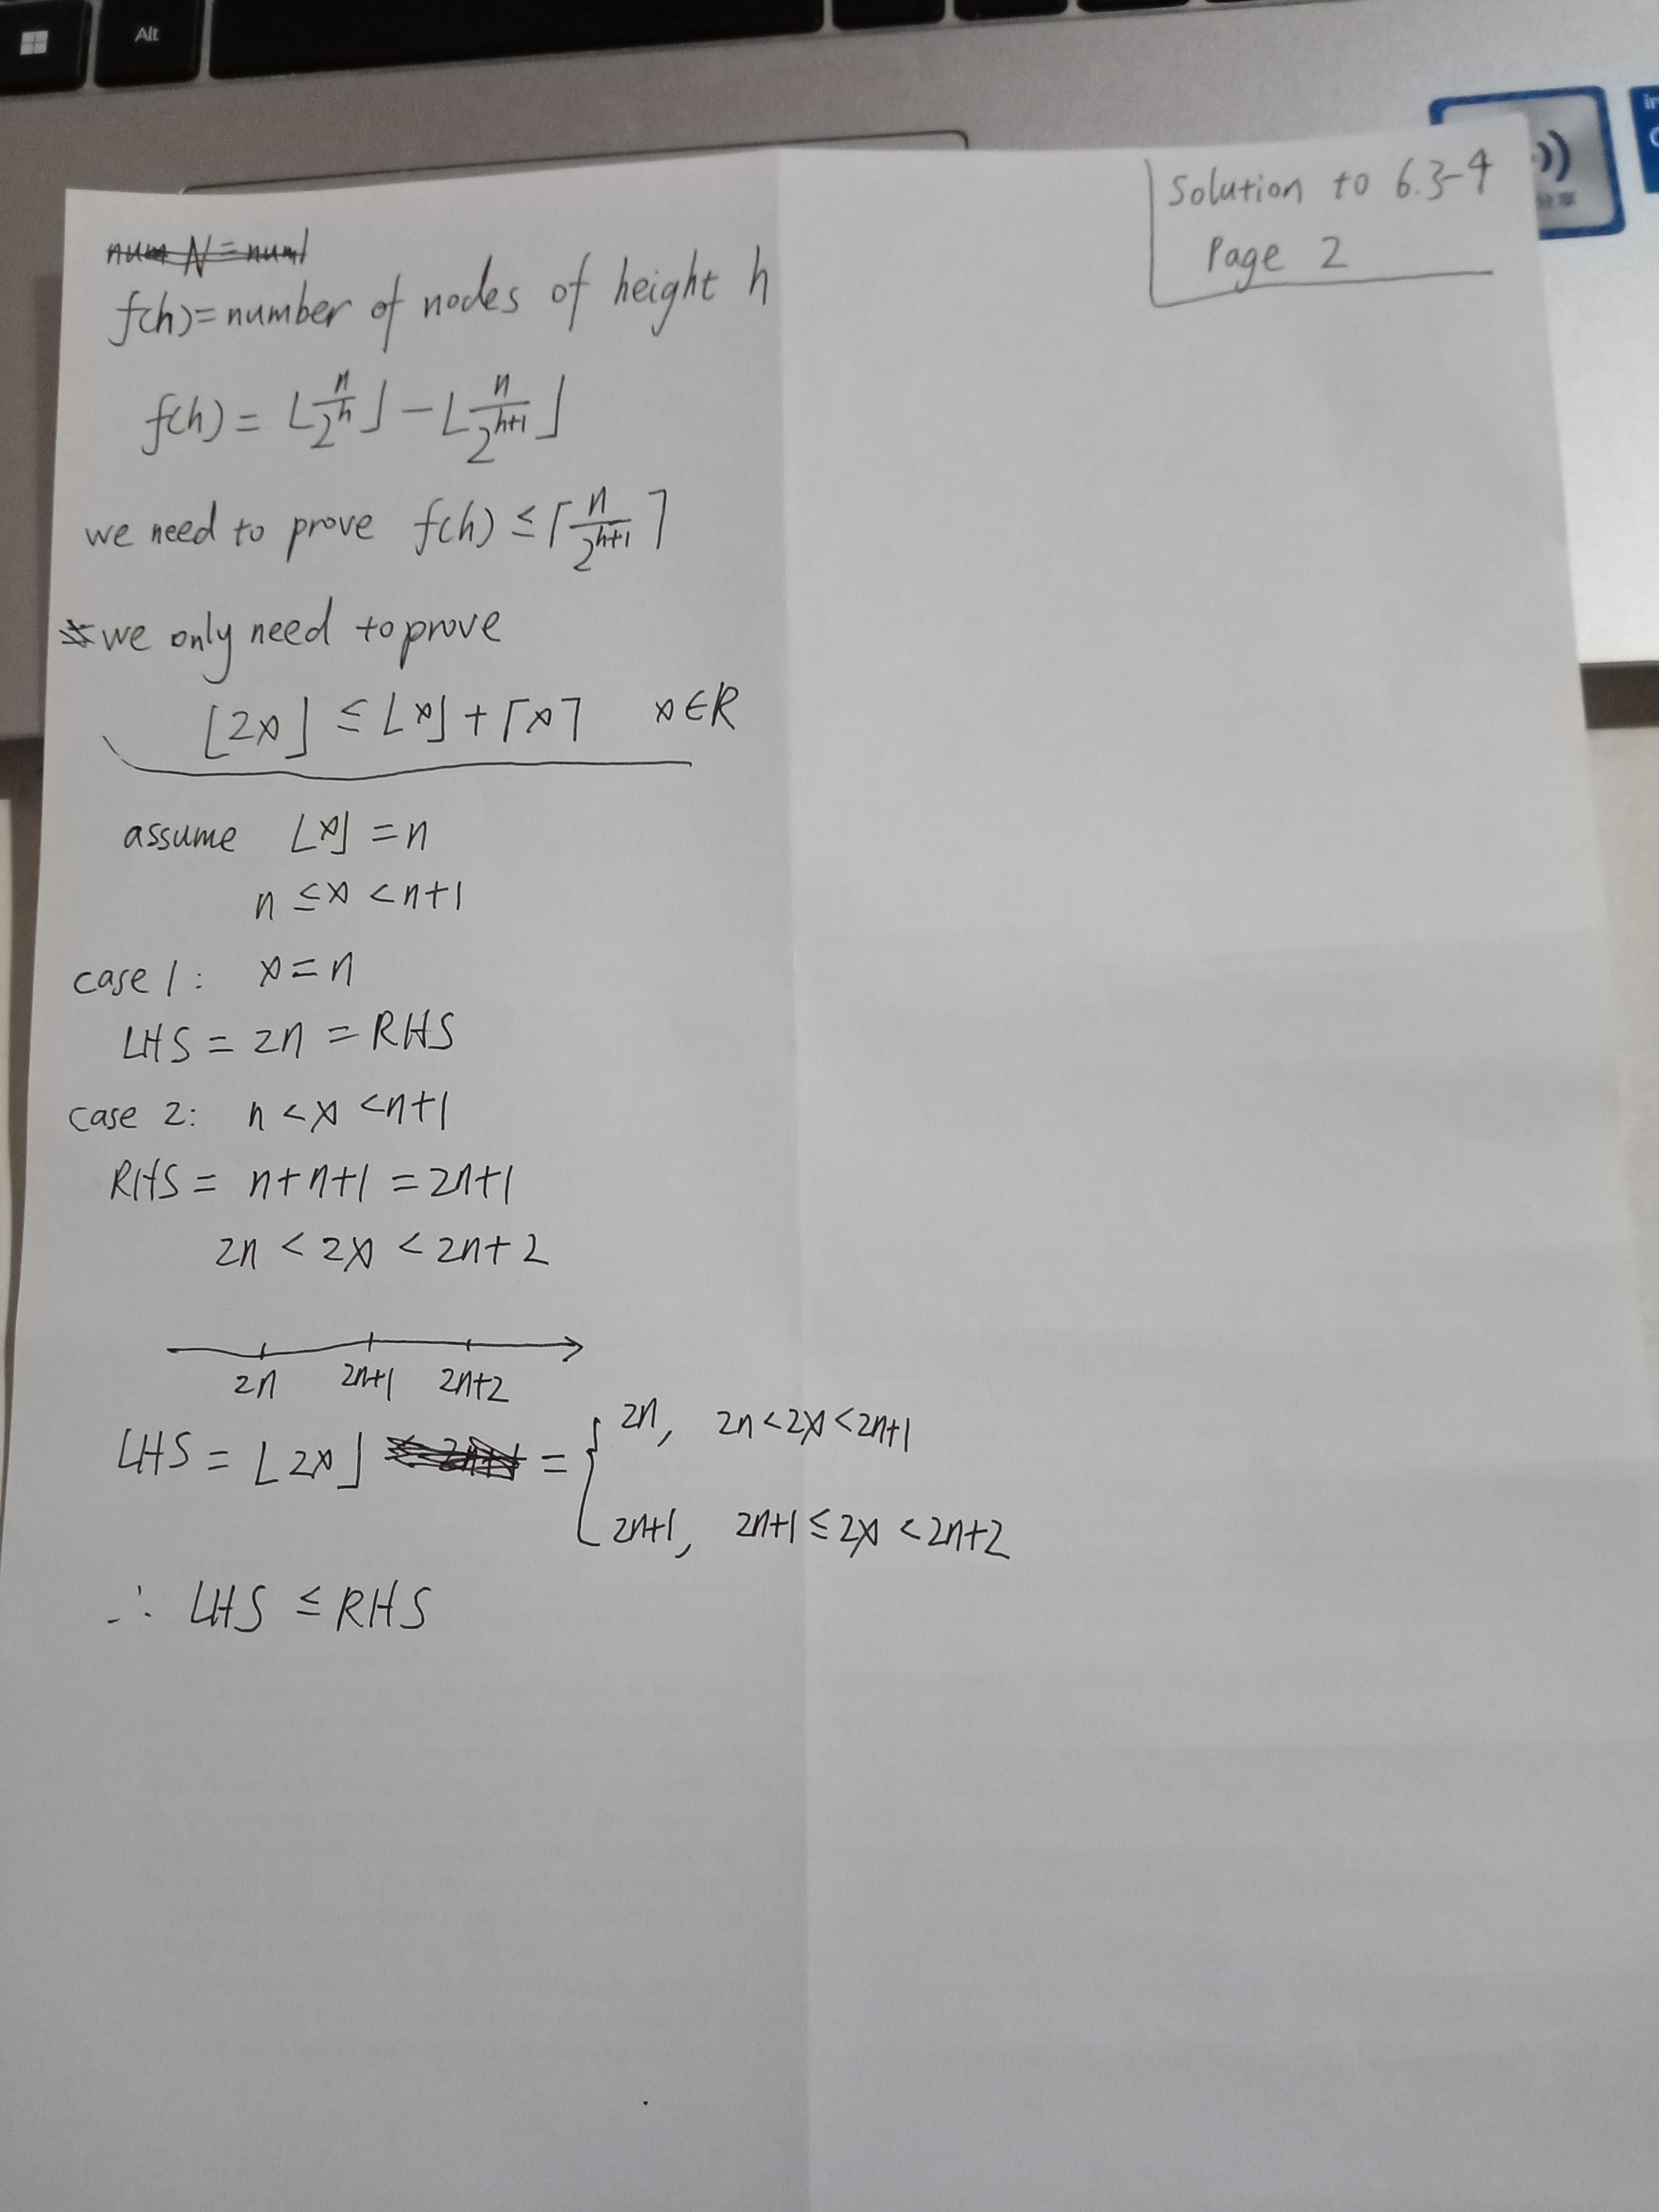 Alt
Solution to 6.3-4
Page 2
分享
num N = num
f(h) = number of nodes of height h
f(h) = ⌊n/2^h⌋ - ⌊n/2^(h+1)⌋
we need to prove f(h) ≤ ⌈n/2^(h+1)⌉
we only need to prove
⌊2x⌋ ≤ ⌊x⌋ + ⌈x⌉ x∈R
assume ⌊x⌋ = n
n ≤ x < n+1
case 1: x = n
LHS = 2n = RHS
case 2: n < x < n+1
RHS = n+n+1 = 2n+1
2n < 2x < 2n+2
2n 2n+1 2n+2
LHS = ⌊2x⌋ = { 2n, 2n < 2x < 2n+1
2n+1, 2n+1 ≤ 2x < 2n+2
∴ LHS ≤ RHS